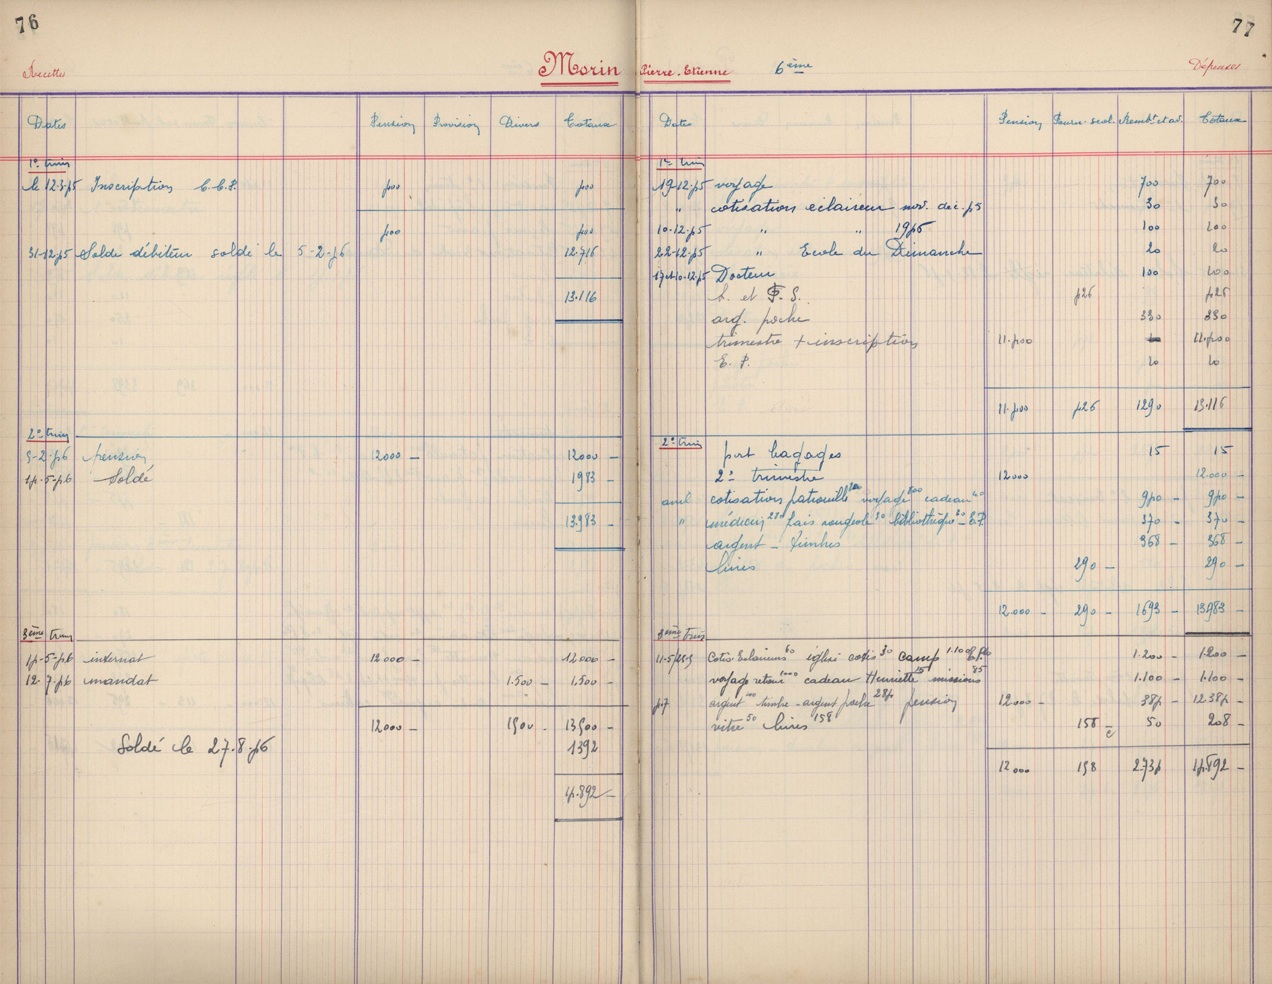 76
Recettes
Morin
Dates Pension Provision Divers Totaux
1er trim
le 12.3.45 Inscription C.C.P. 400 400
400 400
31-12.45 Solde débiteur soldé le 5-2-46 12.716
13.116
2e trim
5-2-46 Pension 12000 – 12000 –
14-5-46 Soldé 1983 –
13.983 –
3ème trim
14-5-46 internat 12000 – 12000 –
12-7-46 mandat 1.500 – 1.500 –
12000 – 1500 – 13500 –
Soldé le 27.8.46 1392
14.892 –
77
Pierre-Etienne 6ème
Dépenses
Dates Pension Fourn. scol. Rembt et av. Totaux
1er trim
19-12.45 voyage 700 700
" cotisation éclaireur nov. déc. 45 30 30
10-12.45 " " 1945 100 100
22-12.45 " Ecole du Dimanche 20 20
Docteur 100 100
L. et F.S. 426 426
arg. poche 330 330
trimestre + inscription 11.400 11.400
E.P. 10 10
11.400 426 1290 13.116
2e trim port bagages 15 15
2e trimestre 12000 12.000 –
avril cotisations patrouille voyage 500 cadeau 40 940 – 940 –
" médecin frais rougeole bibliothèque E.P. 370 – 370 –
argent – timbres 368 – 368 –
livres 290 – 290 –
12.000 – 290 – 1693 – 13983 –
3ème trim
Cotis. Eclaireurs 60 église cotis 30 camp 1.100 1.200 – 1.200 –
voyage retour 1000 cadeau Henriette missions 1.100 – 1.100 –
argent 100 timbre – argent poche 284 pension 12000 – 384 – 12384 –
vitre 50 livres 158 158 – 50 208 –
12000 158 2.734 14.892 –